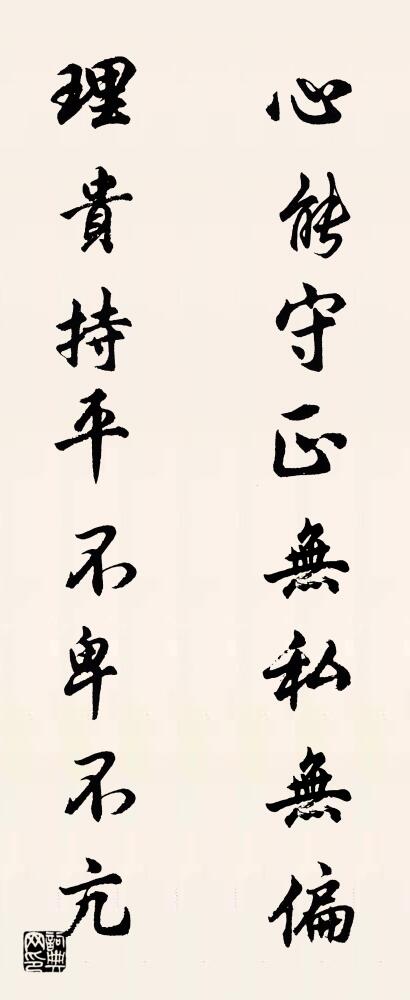 心能守正無私無偏
理貴持平不卑不亢